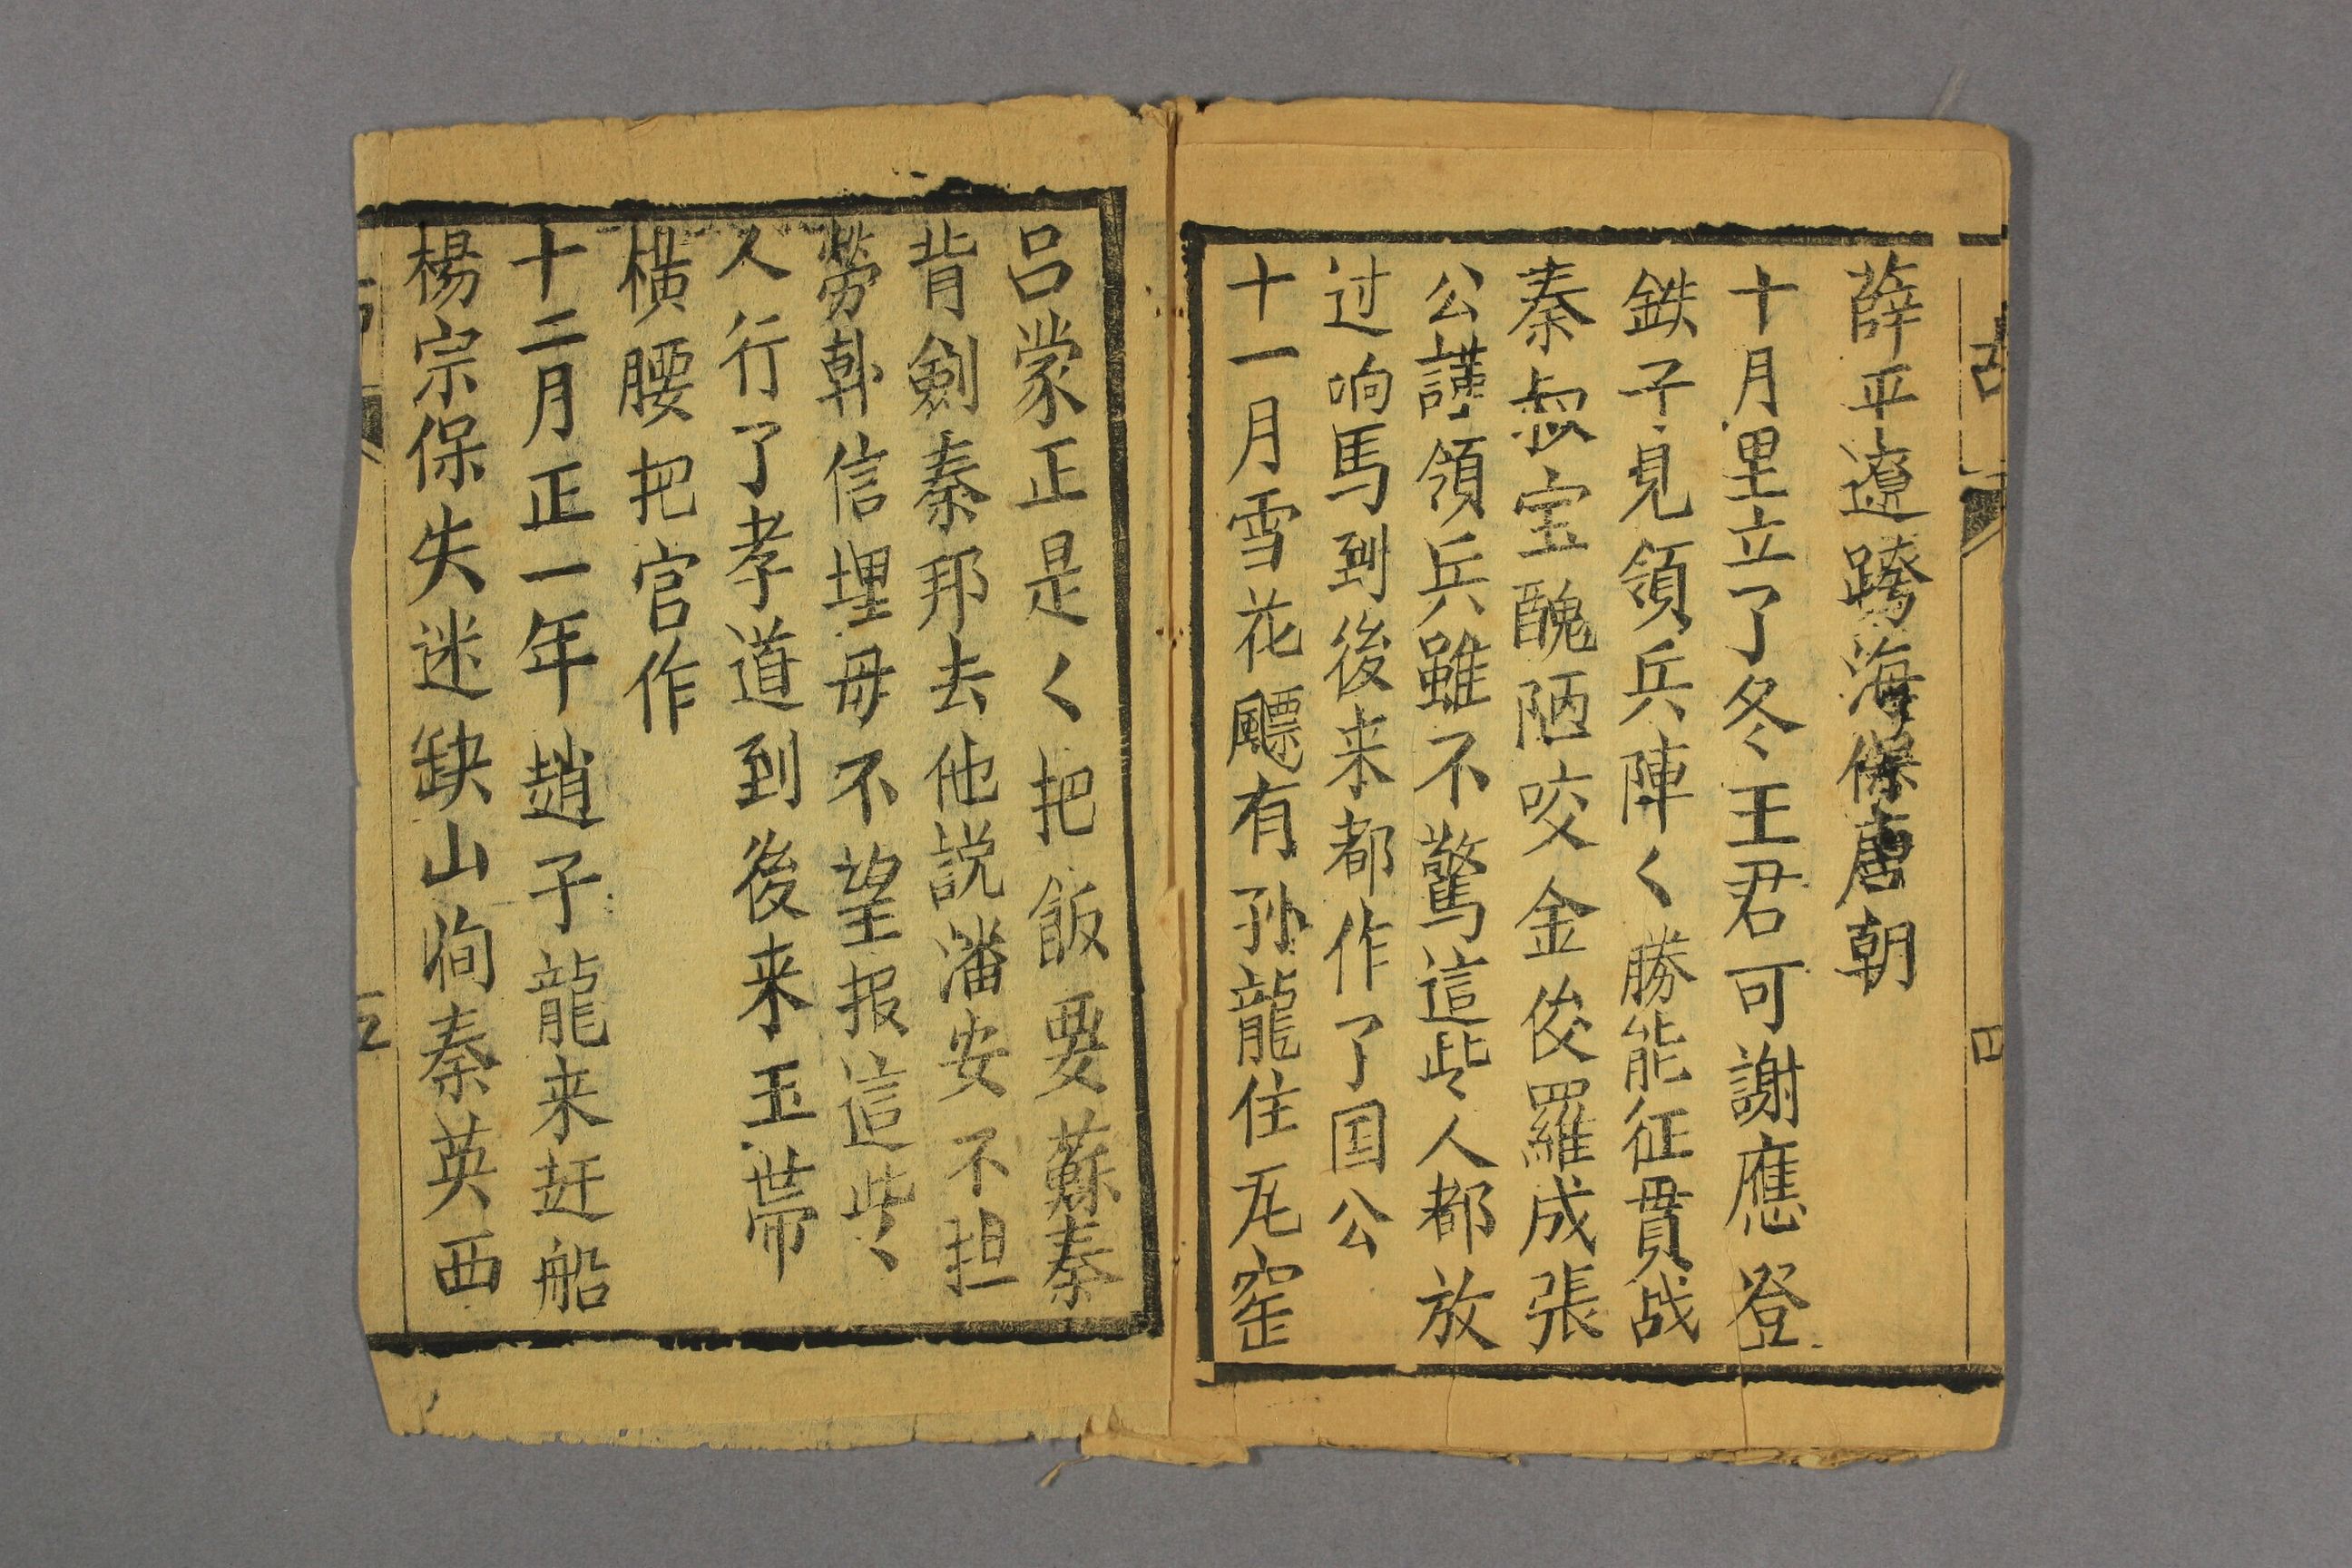 薛平遼跨海保唐朝
十月里立了冬王君可謝應登
鉄子見領兵陣く勝能征貫战
秦叔宝醜陋咬金俊羅成張
公謹領兵雖不驚這些人都放
过响馬到後来都作了国公
十一月雪花飃有孙龍住瓦窑
吕蒙正是く把飯要蘇秦
背劍秦邦去他説潘安不担
勞韩信埋母不望报這些
人行了孝道到後来玉帶
横腰把官作
十二月正一年趙子龍来赶船
楊宗保失迷缺山峝秦英西
古
四
五